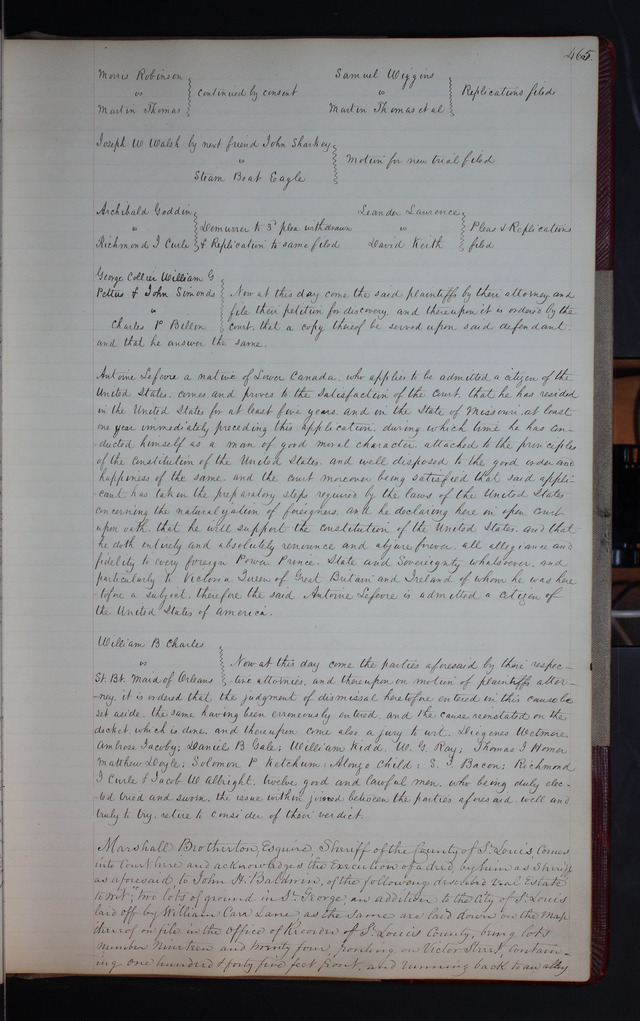 465.
Morris Robinson
vs
Martin Thomas
continued by consent
Samuel Wiggins
vs
Martin Thomas et al
Replications filed
Joseph W Walsh by next friend John Sharkey
vs
Steam Boat Eagle
Motion for new trial filed
Archibald Goddin
vs
Richmond J Curle
Demurrer to 3d plea withdrawn
& Replication to same filed
Leander Lawrence
vs
David Keith
Pleas & Replications
filed
George Collier William G
Pettus & John Simonds
vs
Charles P Billon
Now at this day come the said plaintiffs by their attorney and
file their petition for discovery, and thereupon it is ordered by the
court, that a copy thereof be served upon said defendant
and that he answer the same.
Antoine Lefevre a native of Lower Canada, who applies to be admitted a citizen of the
United States, comes, and proves to the satisfaction of the court, that he has resided
in the United States for at least five years, and in the State of Missouri, at least
one year immediately preceding this application, during which time he has con-
ducted himself as a man of good moral character, attached to the principles
of the constitution of the United States, and well disposed to the good order and
happiness of the same, and the court moreover being satisfied that said appli-
cant has taken the preparatory steps required by the laws of the United States
concerning the naturalization of foreigners, and he declaring here in open court
upon oath, that he will support the constitution of the United States, and that
he doth entirely and absolutely renounce and abjure forever, all allegiance and
fidelity to every foreign Power, Prince, State and Sovereignty whatsoever, and
particularly to Victoria Queen of Great Britain and Ireland of whom he was here
-tofore a subject, therefore the said Antoine Lefevre is admitted a citizen of
the United States of America.
William B Charles
vs
St. Bt. Maid of Orleans
Now at this day come the parties aforesaid by their respec-
tive attornies, and thereupon on motion of plaintiffs attor-
-ney, it is ordered that the judgment of dismissal heretofore entered in this cause be
set aside, the same having been erroneously entered, and the cause reinstated on the
docket, which is done, and thereupon come also a jury to wit, Diogenes Wetmore,
Ambrose Jacoby; Daniel B Gale; William Kidd, W. G. Ray; Thomas J Homer
Matthew Doyle; Solomon P Ketchum; Alonzo Child; S. J Bacon; Richmond
J Curle & Jacob W Albright, twelve good and lawful men, who being duly elec-
-ted tried and sworn, the issue within joined between the parties aforesaid well and
truly to try, retire to consider of their verdict.
Marshall Brotherton, Esquire, Sheriff of the County of St. Louis, comes
into Court here and acknowledges the Execution of a deed, by him as Sheriff
as aforesaid, to John H. Baldwin, of the following described Real Estate
to wit; "two lots of ground in St. George, an addition to the City of St. Louis
laid off by William Carr Lane, as the same are laid down on the Map
thereof on file in the office of Recorder of St. Louis County, being lots
number nineteen and twenty four, fronting on Victor Street, contain-
ing one hundred & forty five feet front, and running back to an alley